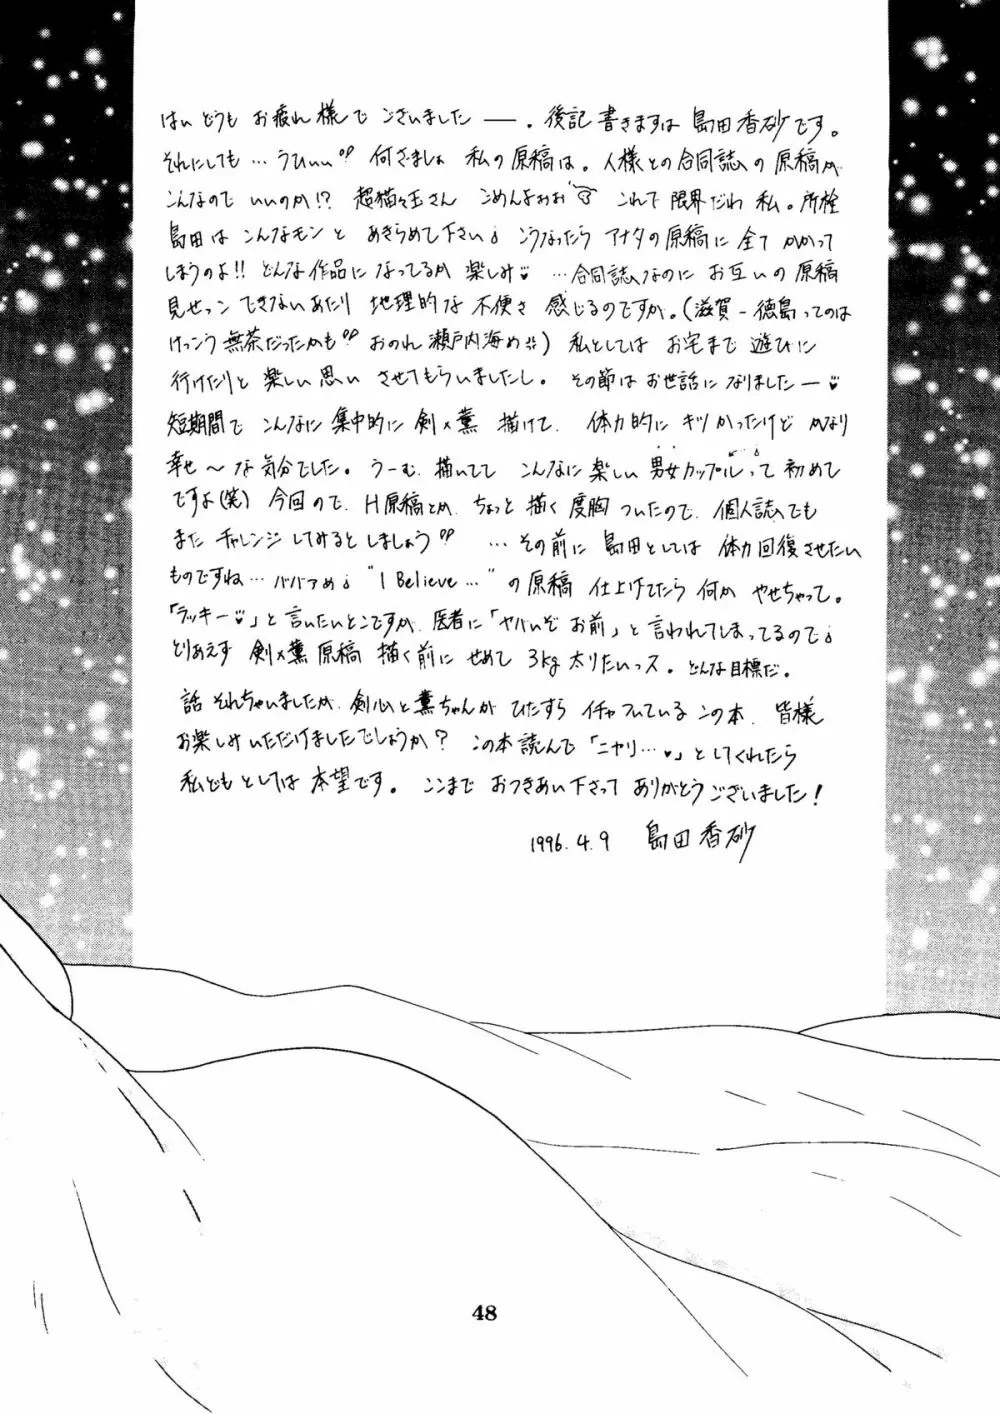 はい どうも お疲れ様で ございました ──。後記 書きますは 島田香砂です。
それにしても… うひぃぃ 何さましょ 私の原稿は。人様との合同誌の原稿が
こんなので いいのか!? 超猫々玉さん ごめんよぉぉ これで 限界だわ 私。所栓
島田は こんなモンと あきらめて下さい♩ こうなったら アナタの原稿に 全て かかって
しまうのよ!! どんな作品に なってるか 楽しみ♥ …合同誌なのに お互いの 原稿
見せっこ できないあたり 地理的な 不便さ 感じるのですが。(滋賀-徳島ってのは
けっこう 無茶だったかも おのれ 瀬戸内海め) 私としては お宅まで 遊びに
行けたりと 楽しい思い させてもらいましたし。その節は お世話に なりましたー♥
短期間で こんなに 集中的に 剣×薫 描けて、体力的に キツかったけど かなり
幸せ〜な気分でした。うーむ、描いてて こんなに 楽しい 男女カップルって 初めて
ですよ(笑) 今回ので、H原稿とか、ちょっと 描く 度胸 ついたので、個人誌でも
また チャレンジ してみると しましょう …その前に 島田としては 体力回復させたい
ものですね… ババァめ♩ “I Believe…”の原稿 仕上げてたら 何か やせちゃって。
「ラッキー♥」と 言いたいとこですが、医者に「ヤバいぞ お前」と 言われてしまってるので♩
とりあえず 剣×薫 原稿 描く前に せめて 3kg 太りたいっス。どんな目標だ。
話 それちゃいましたが、剣心と 薫ちゃんが ひたすら イチャついている この本、皆様
お楽しみいただけましたでしょうか? この本読んで「ニヤリ…♥」としてくれたら
私どもとしては 本望です。ここまで おつきあい下さって ありがとうございました!
1996.4.9 島田香砂
48